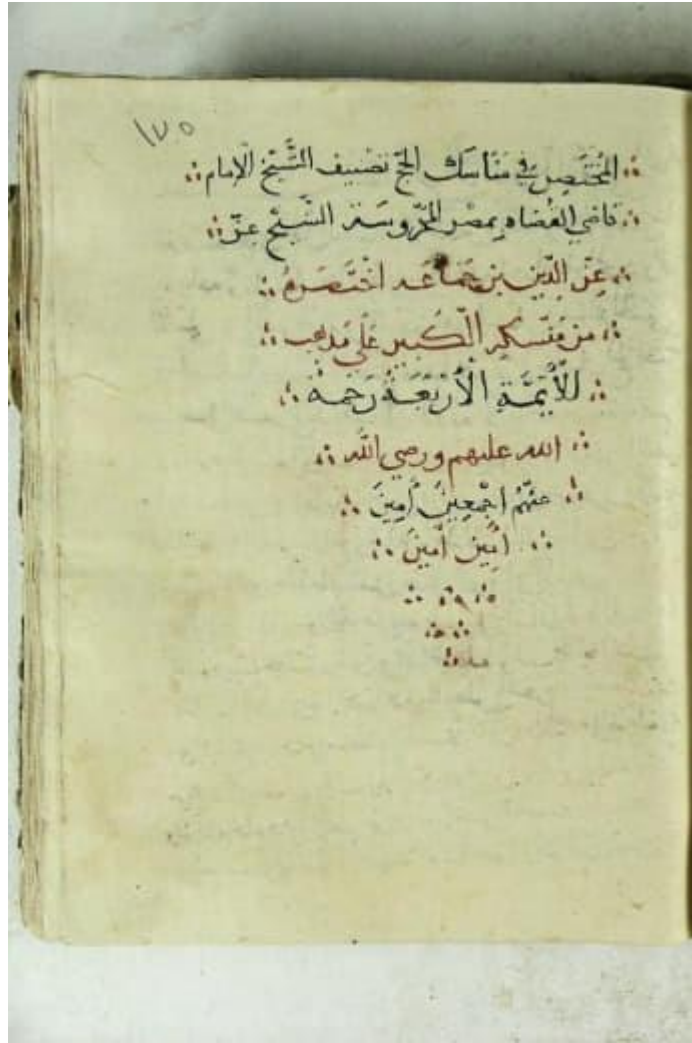 ١٧٥
المختصر في مناسك الحج تصنيف الشَّيخ الإمام
قاضي القضاه بمصر المحروسة الشيخ عزّ
عِزّ الدِّين بن جماعه اختصَرهُ
من مَنْسَكِهِ الكَبير عَلَى مذهب
للأَيمَّةِ الأَرْبَعَةُ رَحمة
الله عليهم ورضي الله
عنهُم اجْمَعِينَ آمِينَ
امِين آمين